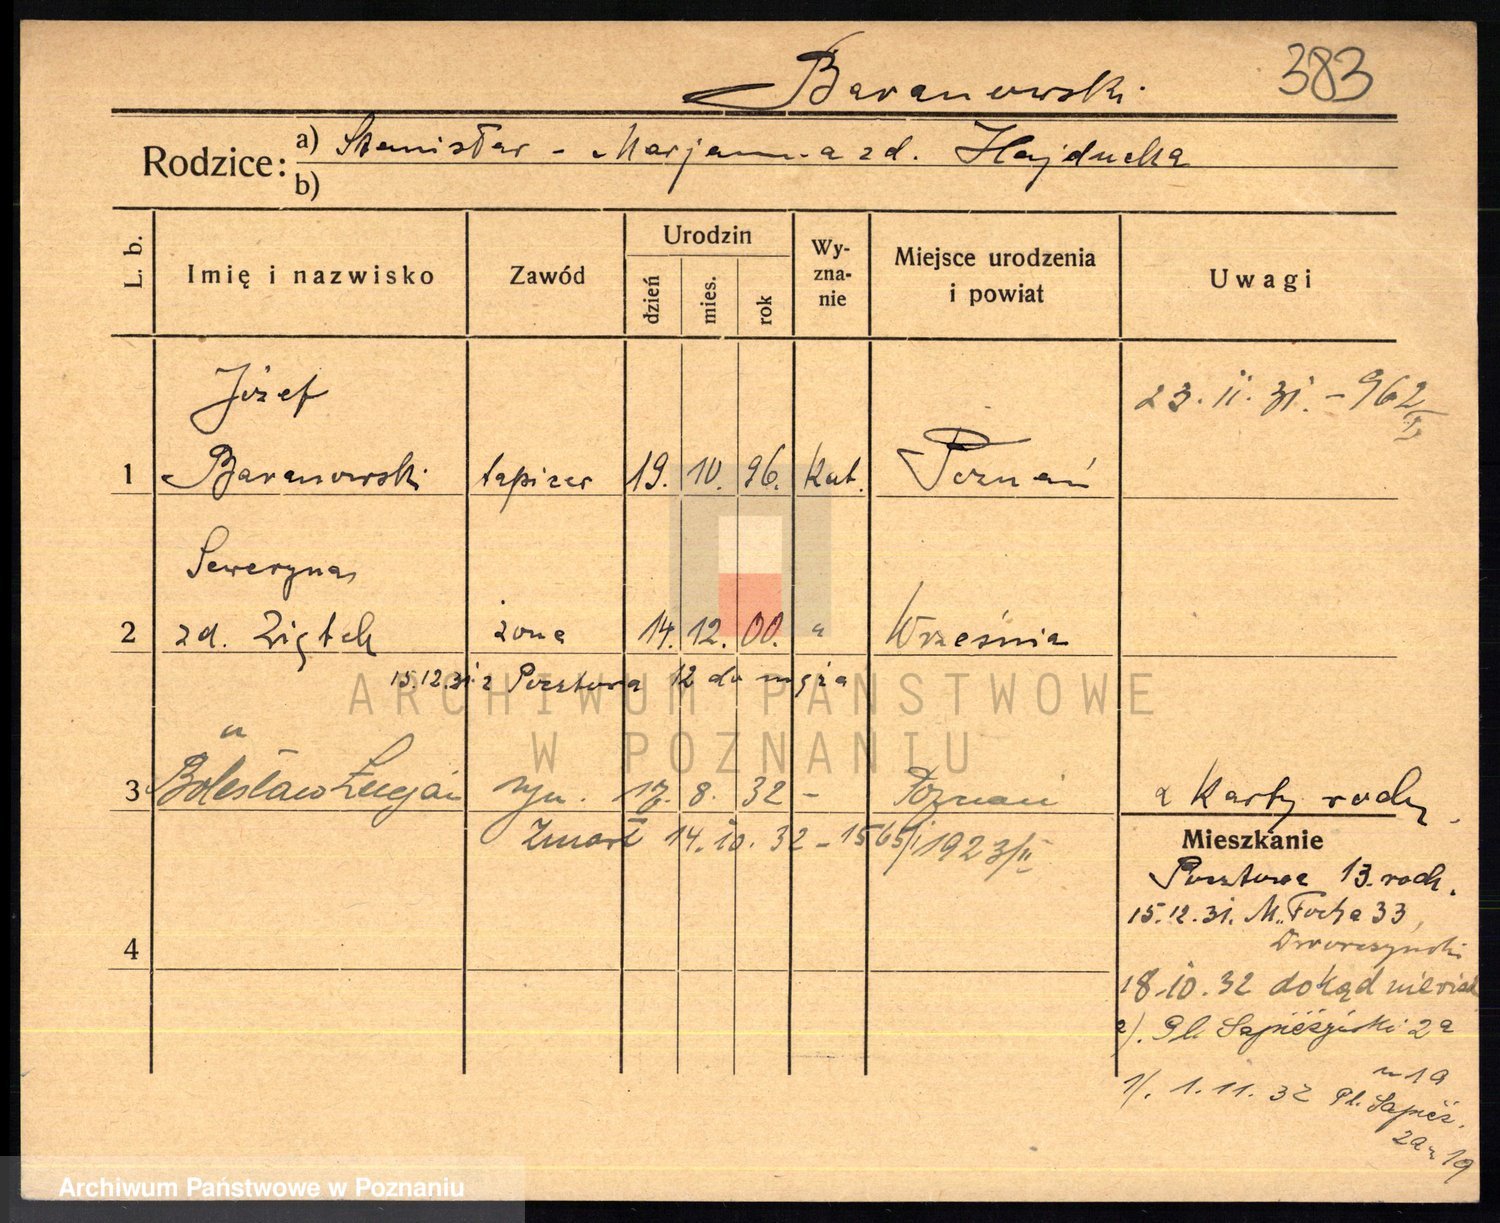 Baranowski
383
Rodzice:
a) Stanisław - Marjanna zd. Hajducka
b)
L. b.
Imię i nazwisko
Zawód
Urodzin
dzień
mies.
rok
Wy-
zna-
nie
Miejsce urodzenia
i powiat
Uwagi
Józef
23.II.31. - 962
1 Baranowski tapicer 19. 10. 96. Kat. Poznań
Seweryna
2 zd. Ziętek żona 14. 12. 00. " Września
15.12.31. z Pocztowa 12 do męża
ARCHIWUM PAŃSTWOWE
W POZNANIU
"
3 Bolesław Łucjan syn. 17. 8. 32 - Poznań
z Karty rodz.
Zmarł 14.10.32 - 1565/I 1923/II
Mieszkanie
Pocztowa 13. rodz.
15.12.31. M. Focha 33,
4
18.10.32 dokąd
2/. Pl. Sapieżyński 2a
m 19
1/. 1.11.32 Pl. Sapież.
2a m 19
Archiwum Państwowe w Poznaniu